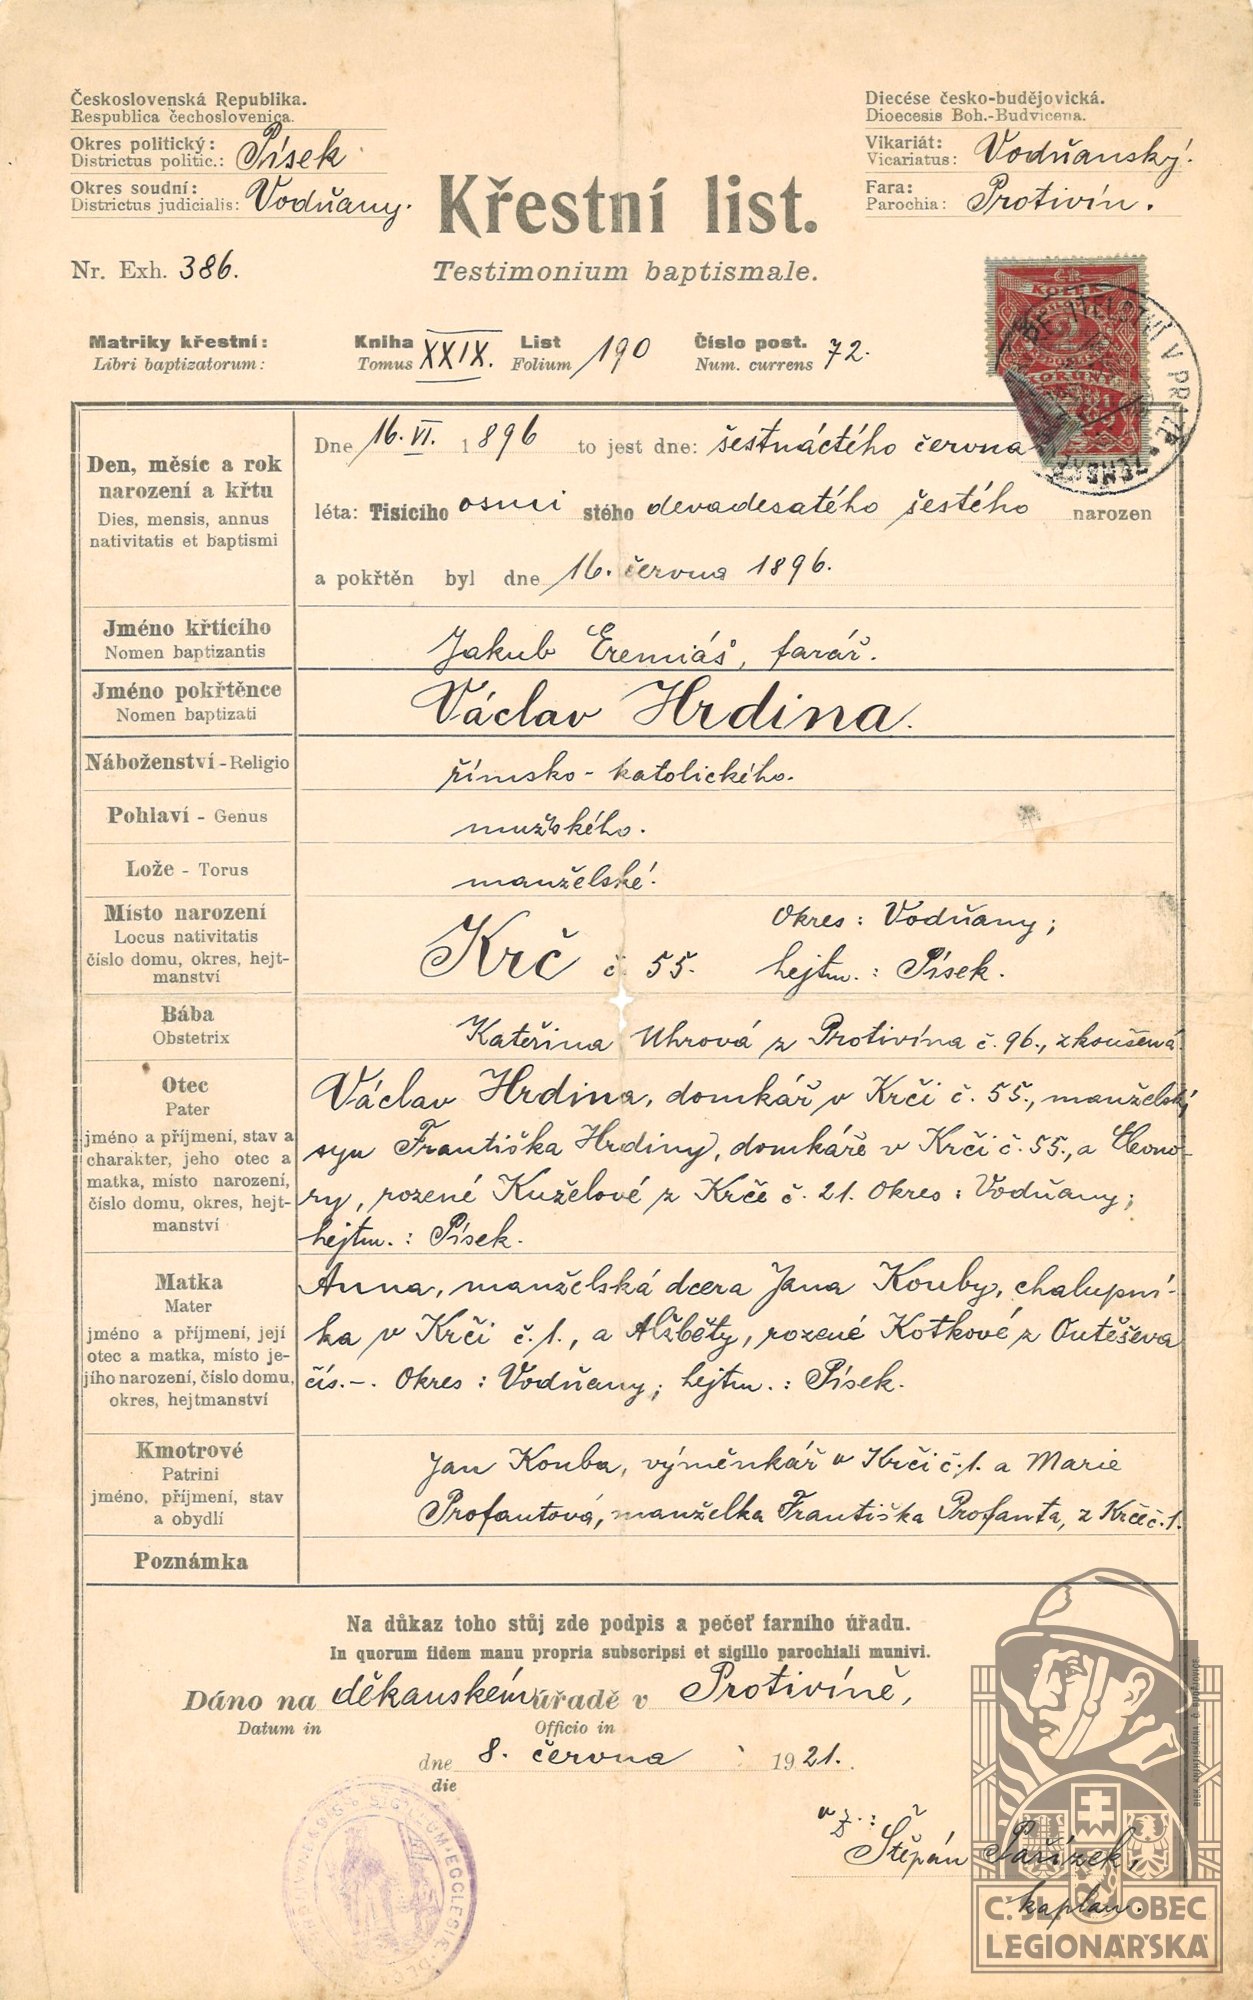 Československá Republika.
Respublica čechoslovenica.
Okres politický:
Districtus politic.: Písek
Okres soudní:
Districtus judicialis: Vodňany.
Nr. Exh. 386.
Diecése česko-budějovická.
Dioecesis Boh.-Budvicena.
Vikariát:
Vicariatus: Vodňanský.
Fara:
Parochia: Protivín.
Křestní list.
Testimonium baptismale.
KOLEK
2
KORUNY
V PRAZE
Matriky křestní: Kniha XXIX. List 190 Číslo post. 72.
Libri baptizatorum: Tomus Folium Num. currens
Den, měsíc a rok
narození a křtu
Dies, mensis, annus
nativitatis et baptismi
Dne 16. VI. 1896 to jest dne: šestnáctého června
léta: Tisícího osmi stého devadesatého šestého narozen
a pokřtěn byl dne 16. června 1896.
Jméno křtícího
Nomen baptizantis
Jakub Eremiáš, farář.
Jméno pokřtěnce
Nomen baptizati
Václav Hrdina.
Náboženství - Religio
římsko-katolického.
Pohlaví - Genus
mužského.
Lože - Torus
manželské.
Místo narození
Locus nativitatis
číslo domu, okres, hejt-
manství
Okres: Vodňany;
Krč č 55. hejtm.: Písek.
Bába
Obstetrix
Kateřina Uhrová z Protivína č. 96., zkoušená.
Otec
Pater
jméno a příjmení, stav a
charakter, jeho otec a
matka, místo narození,
číslo domu, okres, hejt-
manství
Václav Hrdina, domkář v Krči č. 55., manželský
syn Františka Hrdiny, domkáře v Krči č. 55., a Eleono-
ry, rozené Kuželové z Krče č. 21. Okres: Vodňany;
hejtm.: Písek.
Matka
Mater
jméno a příjmení, její
otec a matka, místo je-
jího narození, číslo domu,
okres, hejtmanství
Anna, manželská dcera Jana Kouby, chalupní-
ka v Krči č. 1., a Alžběty, rozené Kotkové z Outěševa
čís. -. Okres: Vodňany; hejtm.: Písek.
Kmotrové
Patrini
jméno, příjmení, stav
a obydlí
Jan Kouba, výměnkář v Krči č. 1. a Marie
Profantová, manželka Františka Profanta, z Krče č. 1.
Poznámka
Na důkaz toho stůj zde podpis a pečeť farního úřadu.
In quorum fidem manu propria subscripsi et sigillo parochiali munivi.
Dáno na děkanském úřadě v Protivíně,
Datum in Officio in
dne 8. června 1921.
die
v z.:
Štěpán Pařízek,
kaplan.
SIGILLUM ECCLESIE
Č. SL. OBEC
LEGIONÁŘSKÁ